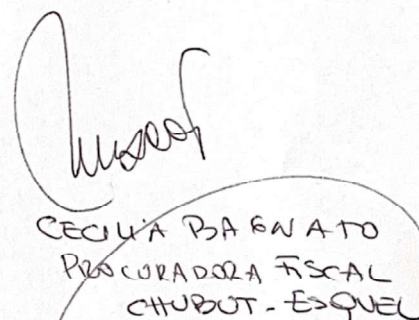 CECILIA BAGNATO
PROCURADORA FISCAL
CHUBUT - ESQUEL